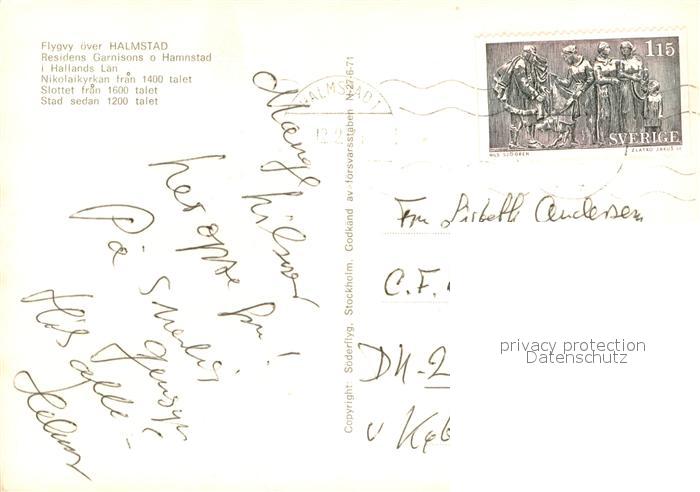 Flygvy över HALMSTAD
Residens Garnisons o Hamnstad
i Hallands Län
Nikolaikyrkan från 1400 talet
Slottet från 1600 talet
Stad sedan 1200 talet
Mange
hilsner
her oppe fra!
På
gensyn
Hils alle -
Copyright: Söderflyg, Stockholm. Godkänd av försvarsstaben N-27-6-71
HALMSTAD 1
1.15
SVERIGE
NILS SJÖGREN
ZLATKO JAKUŠ
Fru Lisbeth Andersen
C.F.
DK-2
v Kyb
privacy protection
Datenschutz